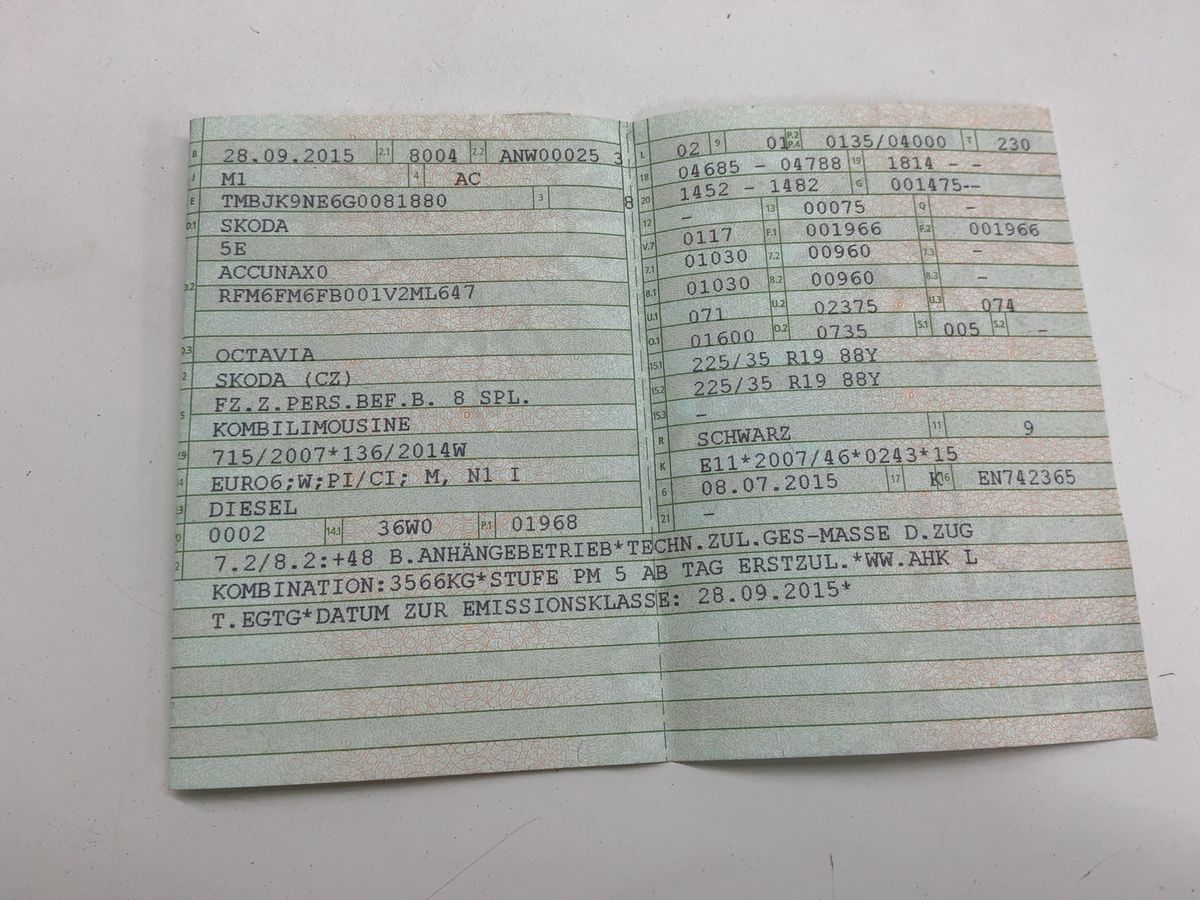 B 28.09.2015 2.1 8004 2.2 ANW00025 3
J M1 4 AC
E TMBJK9NE6G0081880 3 8
D.1 SKODA
5E
ACCUNAX0
D.2 RFM6FM6FB001V2ML647
D.3 OCTAVIA
2 SKODA (CZ)
FZ.Z.PERS.BEF.B. 8 SPL.
5 KOMBILIMOUSINE
V.9 715/2007*136/2014W
14 EURO6;W;PI/CI; M, N1 I
P.3 DIESEL
10 0002 14.1 36W0 P.1 01968
L 02 9 01 P.2 P.4 0135/04000 T 230
18 04685 - 04788 19 1814 - -
20 1452 - 1482 G 001475--
12 - 13 00075 Q -
V.7 0117 F.1 001966 F.2 001966
7.1 01030 7.2 00960 7.3 -
8.1 01030 8.2 00960 8.3 -
U.1 071 U.2 02375 U.3 074
O.1 01600 O.2 0735 S.1 005 S.2 -
15.1 225/35 R19 88Y
15.2 225/35 R19 88Y
15.3 -
R SCHWARZ 11 9
K E11*2007/46*0243*15
6 08.07.2015 17 K 16 EN742365
21 -
22 7.2/8.2:+48 B.ANHÄNGEBETRIEB*TECHN.ZUL.GES-MASSE D.ZUG
KOMBINATION:3566KG*STUFE PM 5 AB TAG ERSTZUL.*WW.AHK L
T.EGTG*DATUM ZUR EMISSIONSKLASSE: 28.09.2015*